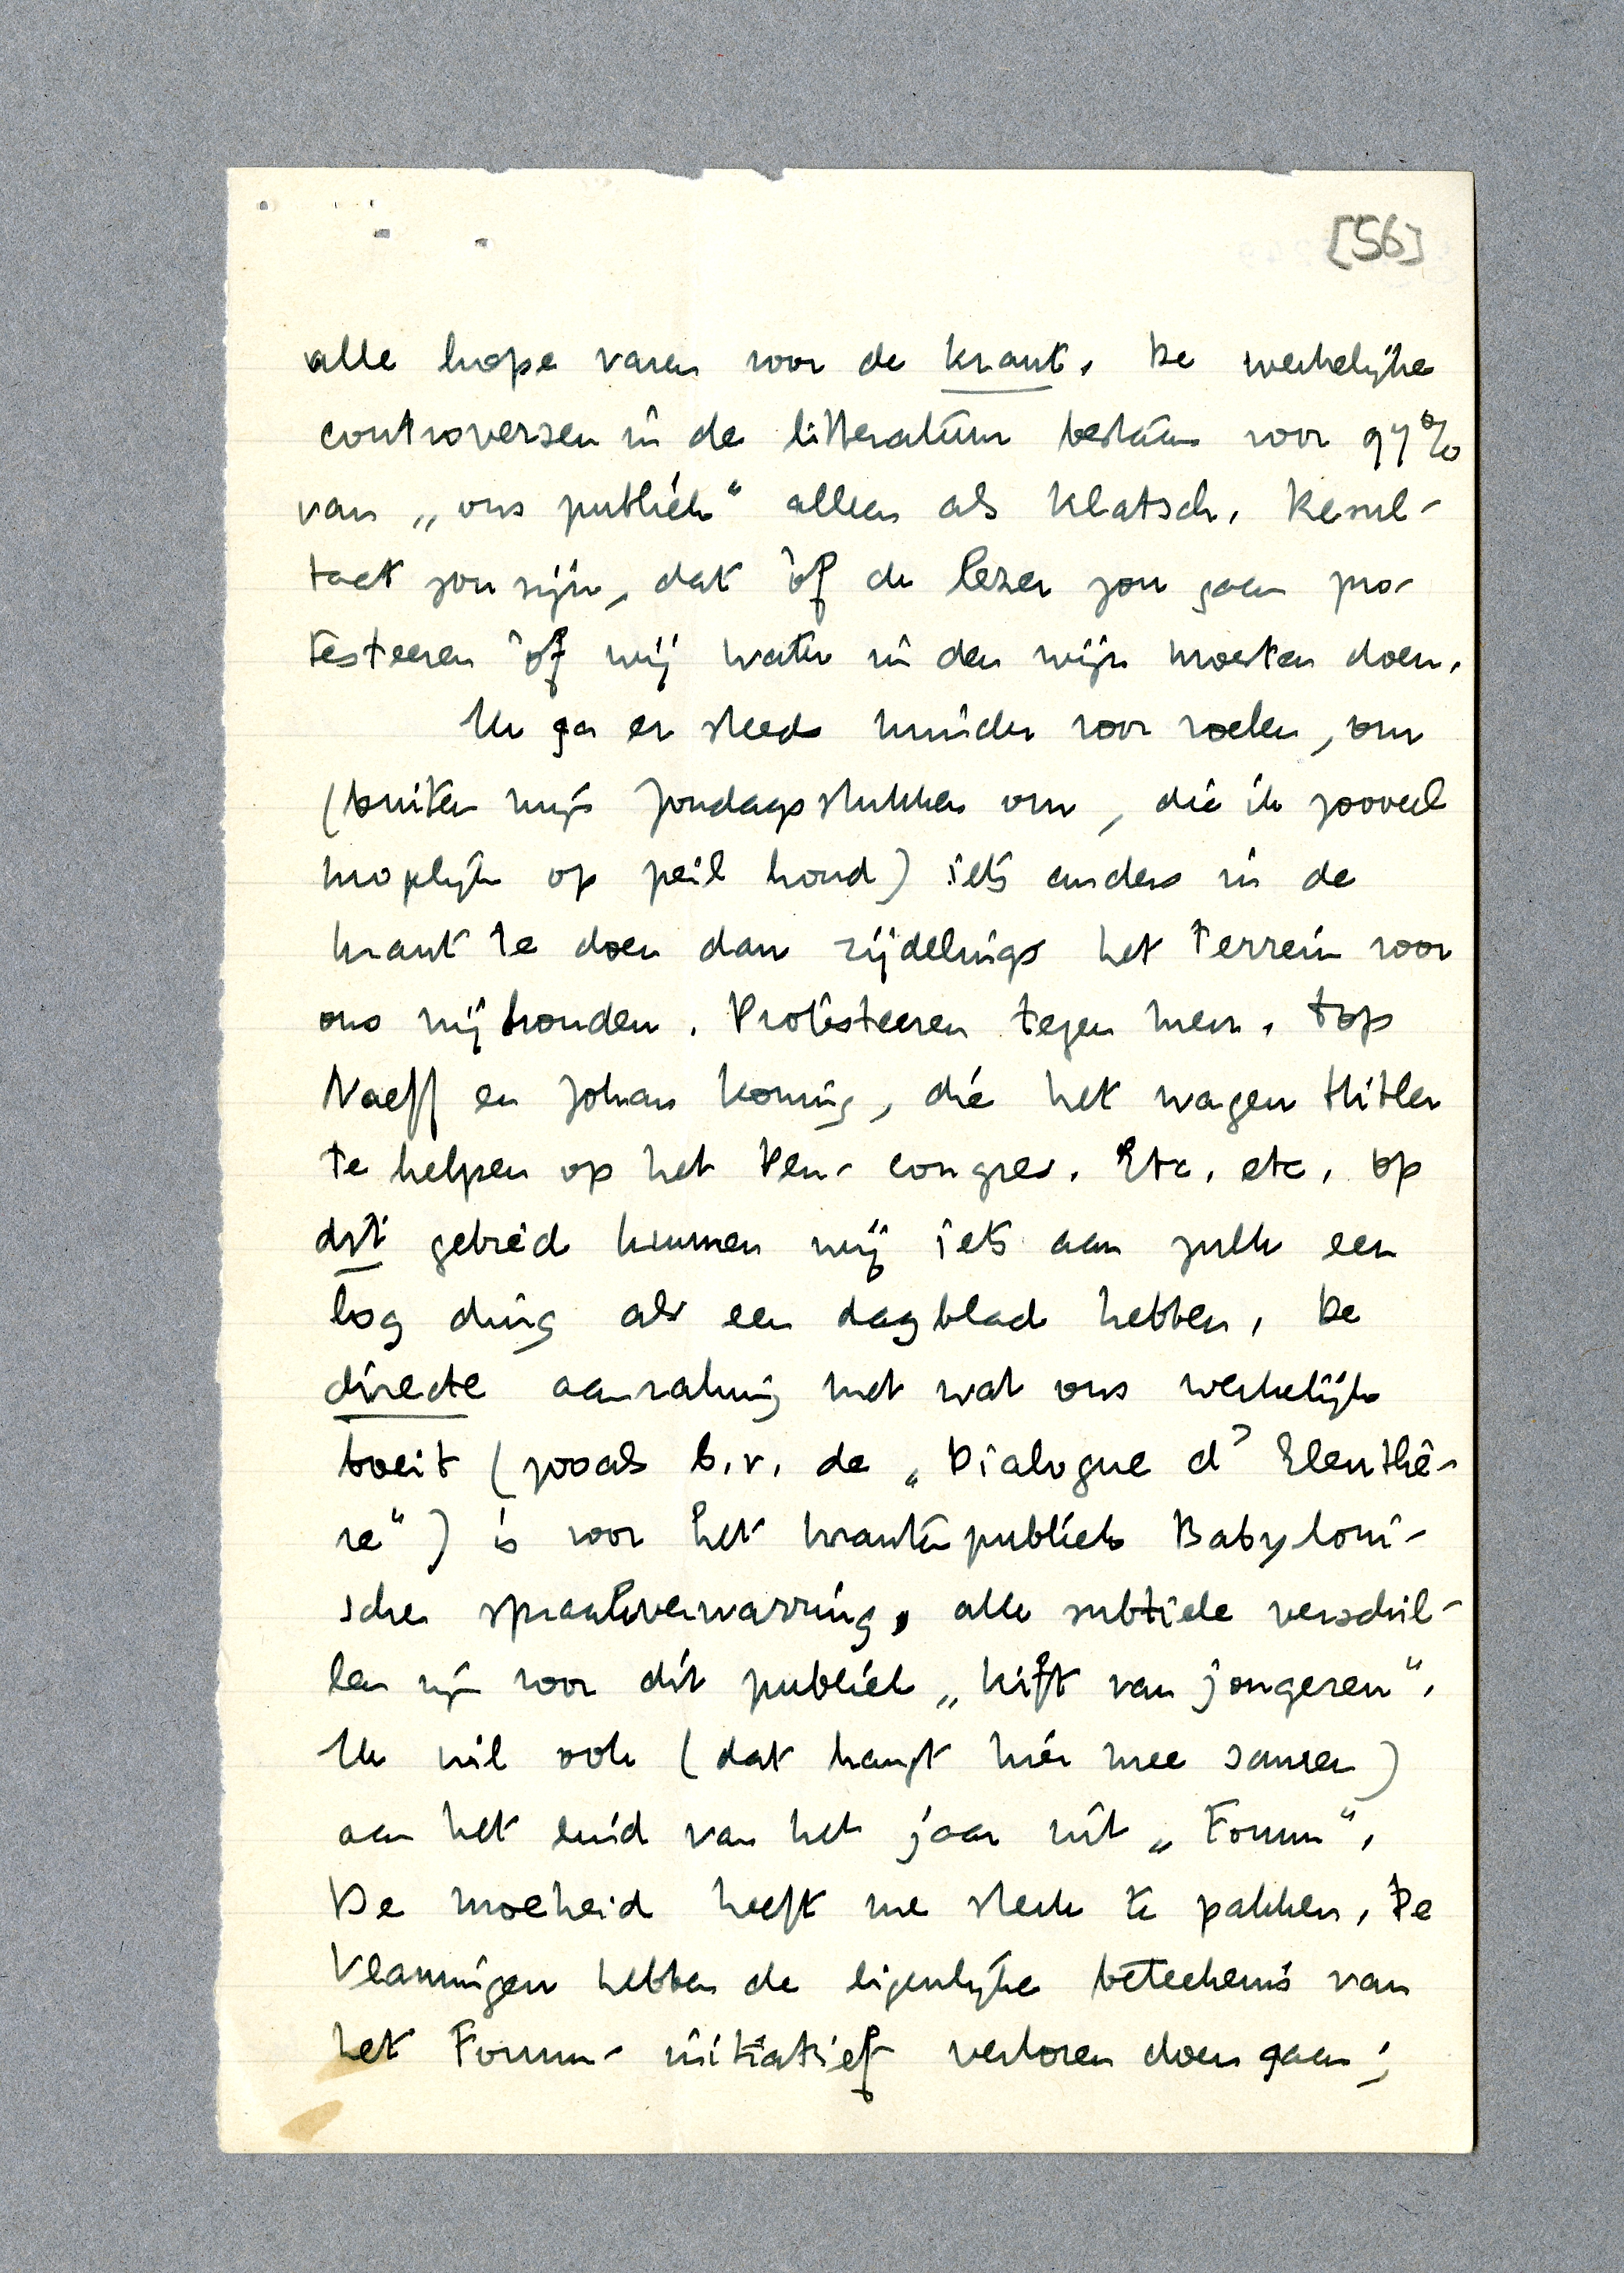 [56]
alle hope varen voor de krant. De werkelijke
controversen in de litteratuur bestaan voor 97%
van „ons publiek" alleen als Klatsch. Resul-
taat zou zijn, dat òf de lezer zou gaan pro-
testeeren òf wij water in den wijn moeten doen.
Ik ga er steeds minder voor voelen, om
(buiten mijn Zondagsstukken om, die ik zooveel
mogelijk op peil houd) iets anders in de
krant te doen dan zijdelings het terrein voor
ons vrijhouden. Protesteeren tegen mevr. Top
Naeff en Johan Koning, die het wagen Hitler
te helpen op het Pen-congres. Etc. etc. Op
dit gebied kunnen wij iets aan zulk een
log ding als een dagblad hebben. De
directe aanraking met wat ons werkelijk
boeit (zooals b.v. de „Dialogue d'Eleuthè-
re") is voor het krantenpubliek Babyloni-
sche spraakverwarring, alle subtiele verschil-
len zijn voor dit publiek „kift van jongeren".
Ik wil ook (dat hangt hier mee samen)
aan het eind van het jaar uit „Forum".
De moeheid heeft me sterk te pakken. De
Vlamingen hebben de eigenlijke beteekenis van
het Forum-initiatief verloren doen gaan;